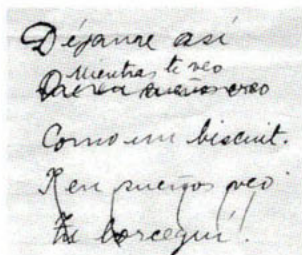 Déjame así
Mientras te veo
Como un biscuit.
Y en sueños veo
tu borceguí!